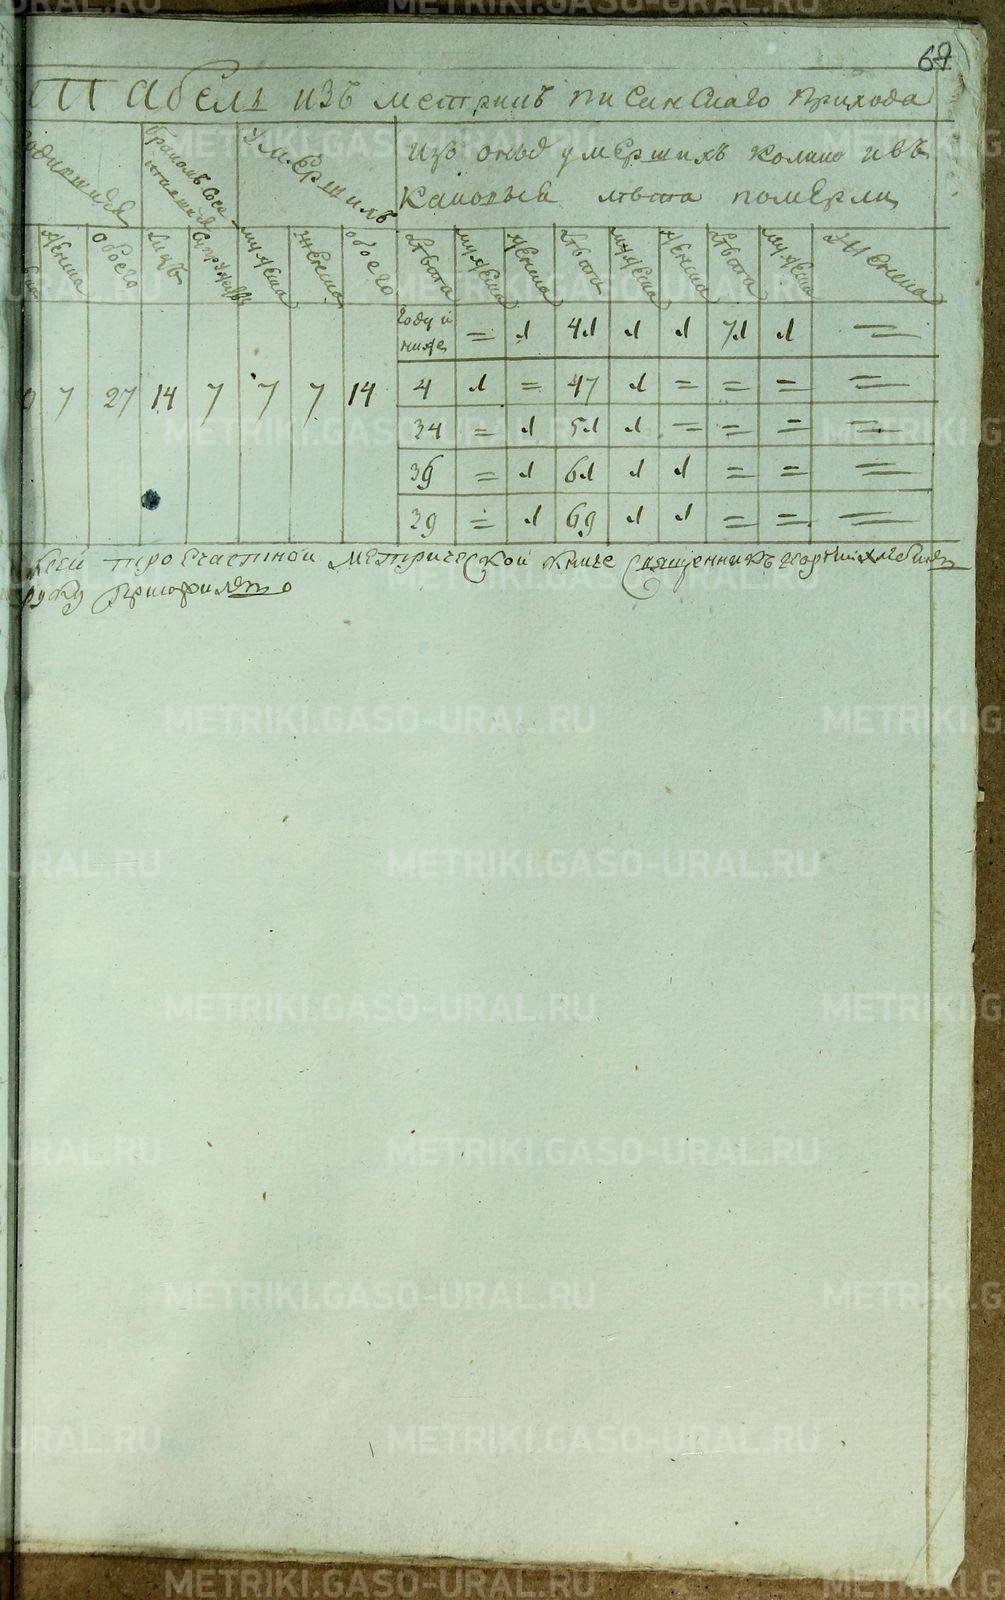 69
Табель изъ метрикъ писанскаго прихода
родившихся
бракомъ соче
тавшихся
умершихъ
изъ оныхъ умершихъ колико и въ
каковыя лѣта померли
женска обоего лицъ супружъ мужеска женска обоего лѣта мужеска женска лѣта мужеска женска лѣта мужеска женска
году и
ниже = 1 41 1 1 71 1 =
7 27 14 7 7 7 14 4 1 = 47 1 = = = =
34 = 1 51 1 = = = =
36 = 1 61 1 1 = = =
39 = 1 69 1 1 = = =
к сей троечастной метрической книге священникъ
руку приложилъ
METRIKI.GASO-URAL.RU